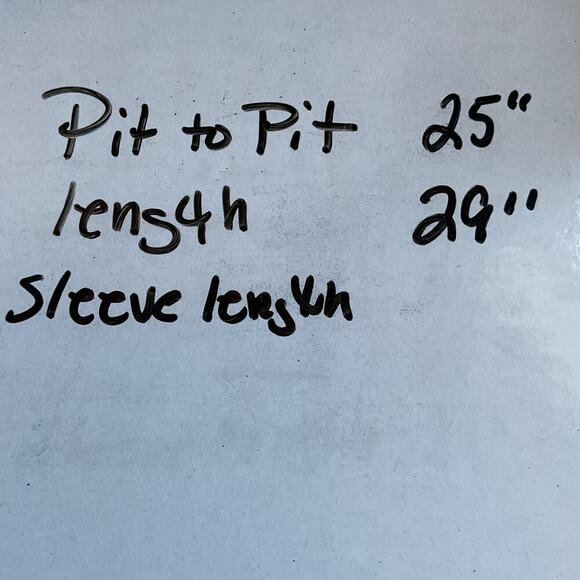 Pit to Pit 25"
length 29"
Sleeve length